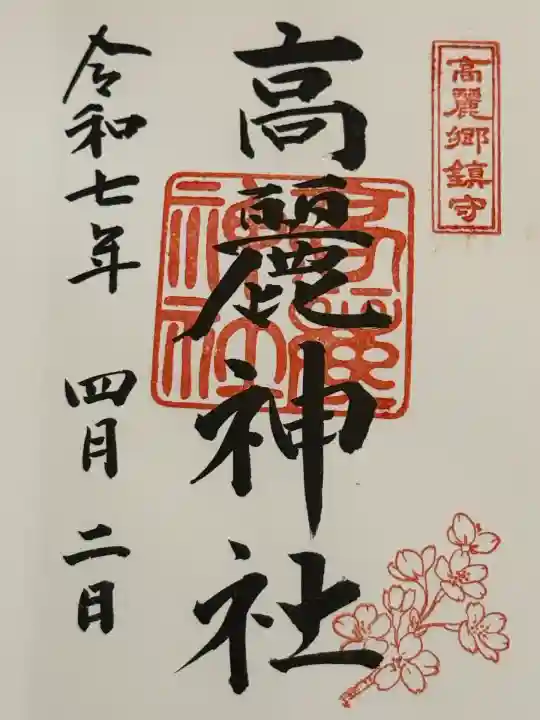 高麗郷鎮守
高麗神社
高麗神社
令和七年 四月 二日